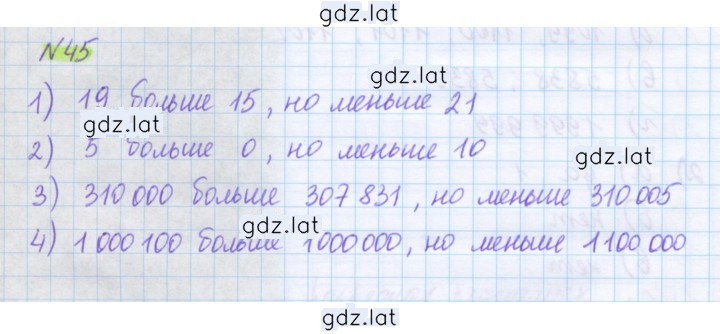 gdz.lat
№45
gdz.lat
1) 19 больше 15, но меньше 21
gdz.lat
2) 5 больше 0, но меньше 10
gdz.lat
3) 310 000 больше 307 831, но меньше 310 005
gdz.lat
4) 1 000 100 больше 1000000, но меньше 1 100 000
gdz.lat